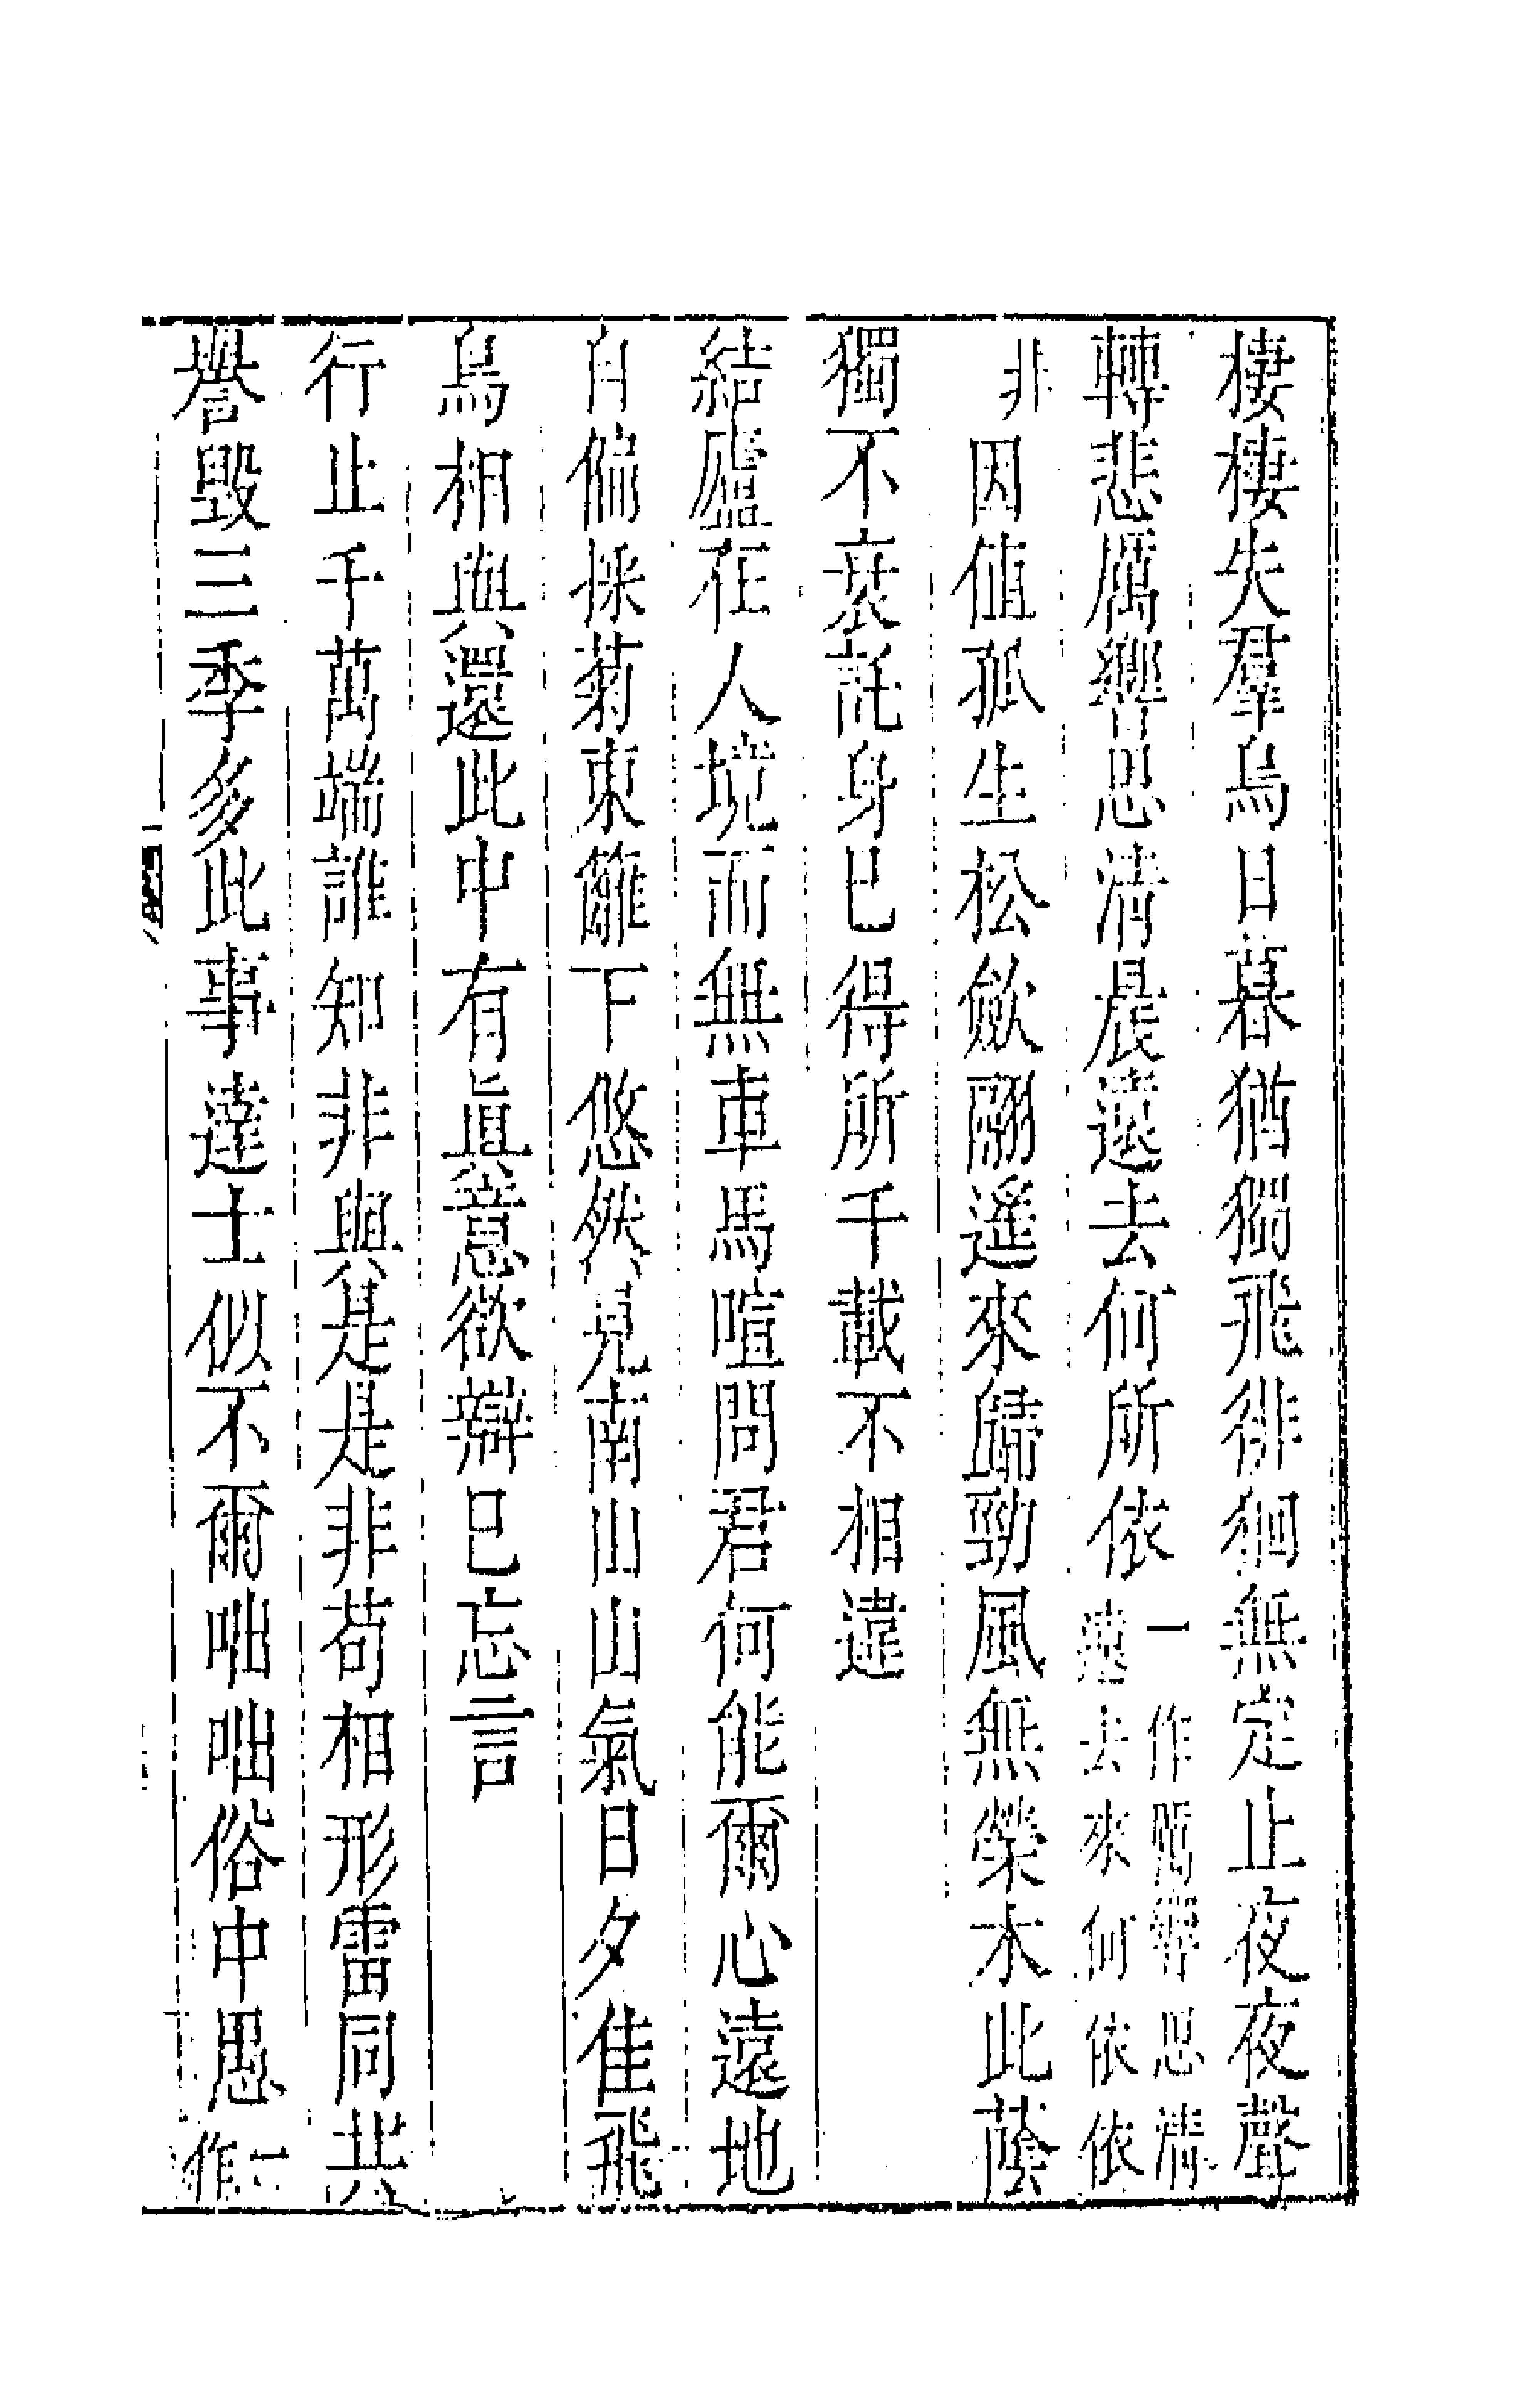 棲棲失羣烏日暮猶獨飛徘徊無定止夜夜聲
轉悲厲響思清晨遠去何所依一作厲響思清遠去來何依依
非因值孤生松斂翮遙來歸勁風無榮木此蔭
獨不衰託身已得所千載不相違
結廬在人境而無車馬喧問君何能爾心遠地
自偏採菊東籬下悠然見南山山氣日夕佳飛
鳥相與還此中有眞意欲辯已忘言
行止千萬端誰知非與是是非苟相形雷同共
譽毀三季多此事達士似不爾咄咄俗中愚一作